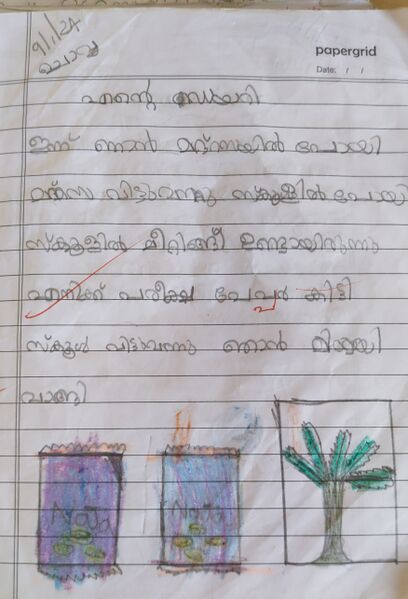 9/1/24
ചൊവ്വ
papergrid
Date: / /
എന്റെ ഡയറി
ഇന്ന് ഞാൻ മദ്റസയിൽ പോയി
മദ്റസ വിട്ടുവന്നു സ്കൂളിൽ പോയി
സ്കൂളിൽ മീറ്റിങ്ങ് ഉണ്ടായിരുന്നു
എനിക്ക് പരീക്ഷ പേപ്പർ കിട്ടി
സ്കൂൾ വിട്ടുവന്നു ഞാൻ മിഠായി
വാങ്ങി